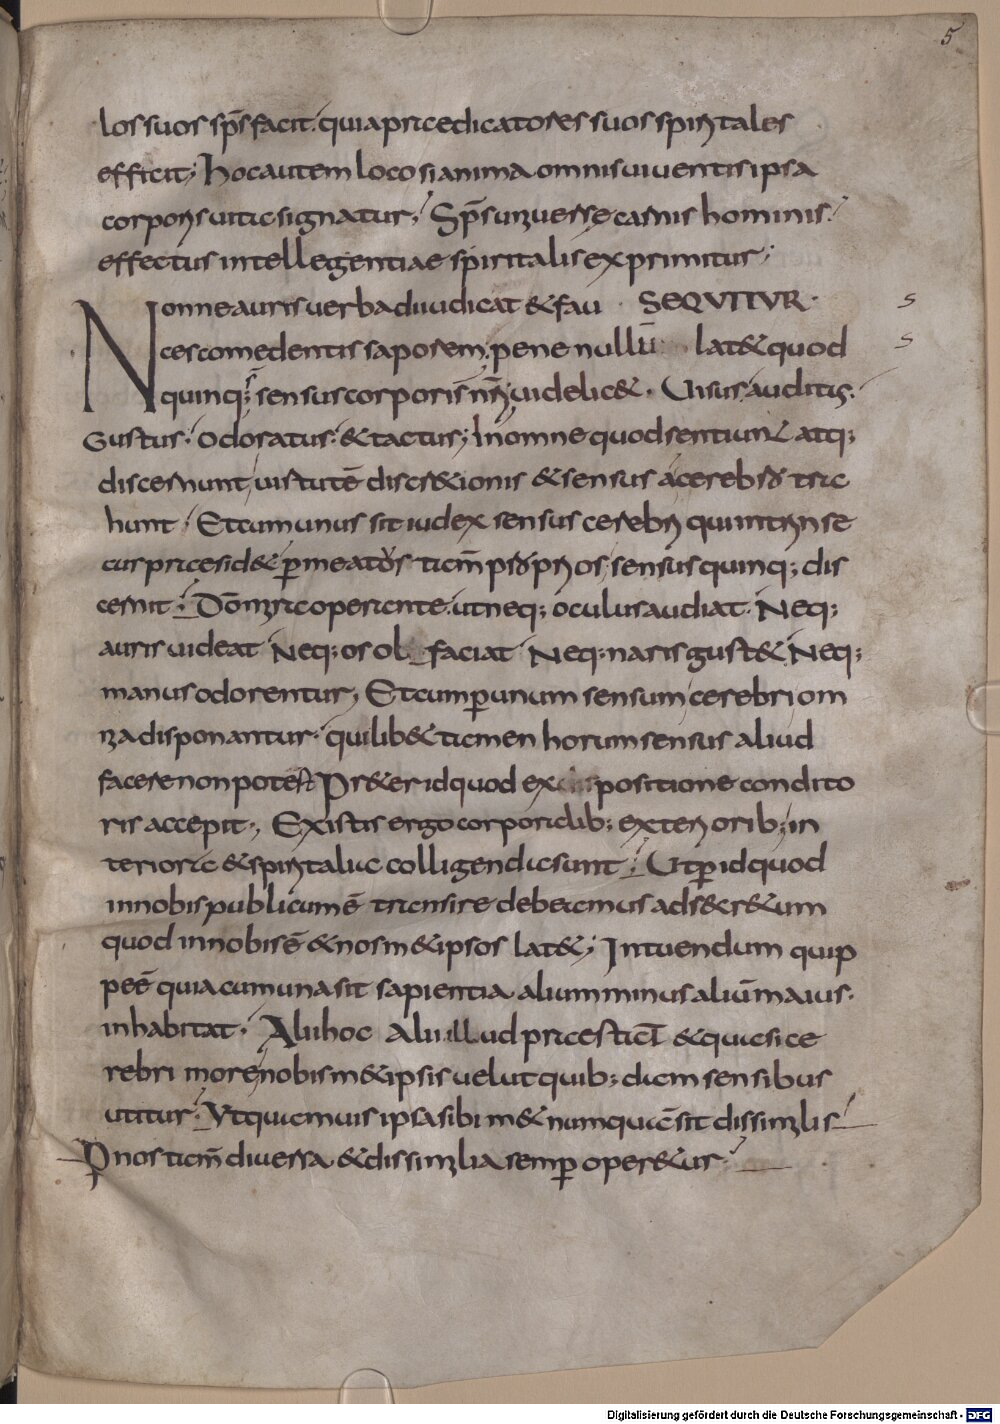 5
los suos sp̄s facit. quia praedicatores suos spiritales
efficit; hoc autem loco si anima omnis uiuentis ipsa
corporis uita signatur; Sp̄s uniuersae carnis hominis.
effectus intellegentiae spiritalis exprimitur;
Nonne auris uerba diiudicat & fau SEQVITVR.
ces comedentis saporem; pene nullū lat& quod
quinq; sensus corporis nr̄i uidelic&. Uisus auditus.
Gustus. odoratus. & tactus; In omne quod sentiunt atq;
discernunt, uirtutē discr&ionis & sensus a cerebro tra
hunt. Et cum unus sit iudex sensus cerebri qui intrinse
cus praesid& ꝑ meatus tam̄ proprios, sensus quinq; dis
cernit. Dō mira operante. ut neq; oculus audiat. Neq;
auris uideat Neq; os olfaciat Neq; naris gust& Neq;
manus odorentur; Et cum ꝑ unum sensum cerebri om
nia disponantur. quilib& tamen horum sensus aliud
facere non potest Pr&er id quod ex dispositione condito
ris accepit., Ex istis ergo corporalib; exterioribus; in
teriora & spiritalia colligenda sunt; Ut ꝑ id quod
in nobis publicum ē transire debeamus ad secr&um
quod in nobis ē & nosm&ipsos lat&; Intuendum quip
pe ē quia cum una sit sapientia alium minus aliū maius.
inhabitat. Alii hoc Alii illud praestat & quasi ce
rebri more, nobism&ipsis uelut quib;dam sensibus
utitur. Vt quamuis ipsa sibim& numquā sit dissimilis
Ꝑ nos tam̄ diuersa & dissimilia semꝑ oper&ur.
s
s
Digitalisierung gefördert durch die Deutsche Forschungsgemeinschaft - DFG